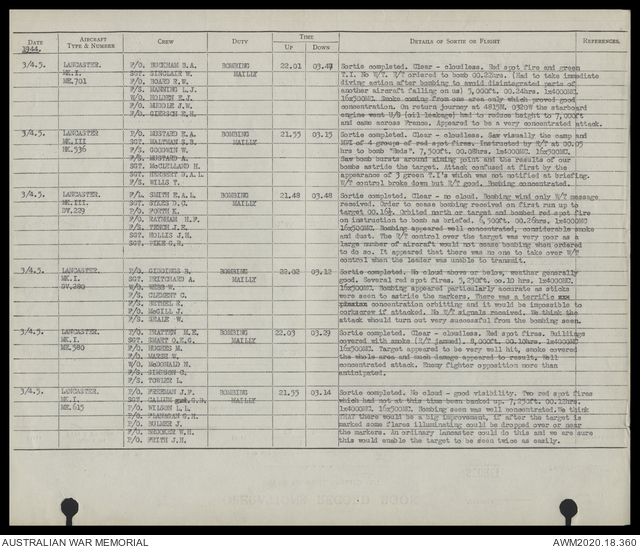 DATE 1944. AIRCRAFT TYPE & NUMBER CREW DUTY TIME UP DOWN DETAILS OF SORTIE OR FLIGHT REFERENCES.
3/4.5. LANCASTER. F/O. BUCKMAN B.A. BOMBING 22.01 03.47 Sortie completed. Clear - cloudless. Red spot fire and green
MK.I. SGT. SINCLAIR W. MAILLY T.I. No W/T. R/T ordered to bomb 00.22hrs. (Had to take immediate
ME.701 F/O. BOARD E.W. diving action after bombing to avoid disintegrated parts of
F/S. MANNING L.J. another aircraft falling on us) 5,000ft. 00.24hrs. 1x4000MC
W/O. HOLDEN E.J. 16x500MC. Smoke coming from one area only which proved good
concentration. On return journey at 4815N. 0320E the starboard
engine went U/S (oil leakage) had to reduce height to 7,000ft
F/O. GIERSCH E.H. and came across France. Appeared to be a very concentrated attack.
3/4.5. LANCASTER. F/O. MUSTARD E.A. BOMBING 21.55 03.15 Sortie completed. Clear - cloudless. Saw visually the camp and
MK.III SGT. WALTMAN S.B. MAILLY of 4 groups of red spot fires. Instructed by R/T at 00.05
F/S. GOODWIN W. hrs to bomb "Reds". 7,500ft. 1x4000MC. 16x500MC.
F/S. MUSTARD A. Saw bomb bursts around aiming point and the results of our
SGT. McCLELLAND H. bombs astride the target. Attack confused at first by the
SGT. HERBERT D.A.L. appearance of 3 green T.I's which was not notified at briefing.
F/S. WILLS T. W/T control broke down but R/T good. Bombing concentrated.
3/4.5. LANCASTER. P/L. SMITH E.A.L. BOMBING 21.48 03.48 Sortie completed. Clear - no cloud. Bombing wind only W/T message
MK.III. SGT. SYKES D.C. MAILLY received. Order to cease bombing received on first run up to
DV.229 F/O. FORTH K. target 00.16½. Orbited north or target and bombed red spot fire
F/O. RATHMAN H.F. on instruction to bomb as briefed. 6,500ft. 00.26hrs. 1x4000MC
F/S. TENCH J.E. 16x500MC. Bombing appeared well concentrated, considerable smoke
SGT. HOLLIS J.H. and dust. The R/T control over the target was very poor as a
SGT. PIKE G.R. large number of aircraft would not cease bombing when ordered
to do so. It appeared that there was no one to take over W/T
control when the leader was unable to transmit.
3/4.5. LANCASTER. P/O. GIDDINGS R. BOMBING 22.02 03.12 Sortie completed. No cloud above or below, weather generally
MK.I. SGT. PRITCHARD A. MAILLY good. Several red spot fires. 5,250ft. 00.10 hrs. 1x4000MC.
DV.280 W/O. WEBB W. 16x500MC. Bombing appeared particularly accurate as sticks
F/S. CLEMENT C. were seen to astride the markers. There was a terrific
F/S. BETHEL R. concentration orbitting and it would be impossible to
F/O. McGILL J. corkscrew if attacked. No W/T signals received. We think the
F/S. NEALE W. attack would turn out very successful from the bombing seen.
3/4.5. LANCASTER. P/O. BRAFTEN M.E. BOMBING 22.03 03.29 Sortie completed. Clear - cloudless. Red spot fires. Buildings
MK.I. SGT. SMART O.K.G. MAILLY covered with smoke (R/T jammed). 8,000ft. 00.10hrs. 1x4000MC
ME.580 F/O. HUGHES M. 16x500MC. Target appeared to be very well hit, smoke covered
P/O. MARSH W. the whole area and much damage appeared to result. Well
W/O. McDONALD N. concentrated attack. Enemy fighter opposition more than
F/S. SIMPSON C. anticipated.
F/S. TOWLER L.
3/4.5. LANCASTER. P/O. FREEMAN J.F. BOMBING 21.55 03.14 Sortie completed. No cloud - good visibility. Two red spot fires
MK.I. SGT. MAILLY which had not at this time been backed up. 7,250ft. 00.12hrs.
ME.615 F/O. WILSON L.L. 1x4000MC. 16x500MC. Bombing seen was well concentrated. We think
F/O. FLANAGAN G.H. THAT there would be a big improvement, if after the target is
F/O. BULMER J. marked some flares illuminating could be dropped over or near
F/O. BROOKER W.H. the markers. An ordinary Lancaster could do this and we are sure
F/O. FRITH J.H. this would enable the target to be seen twice as easily.
AUSTRALIAN WAR MEMORIAL AWM2020.18.360